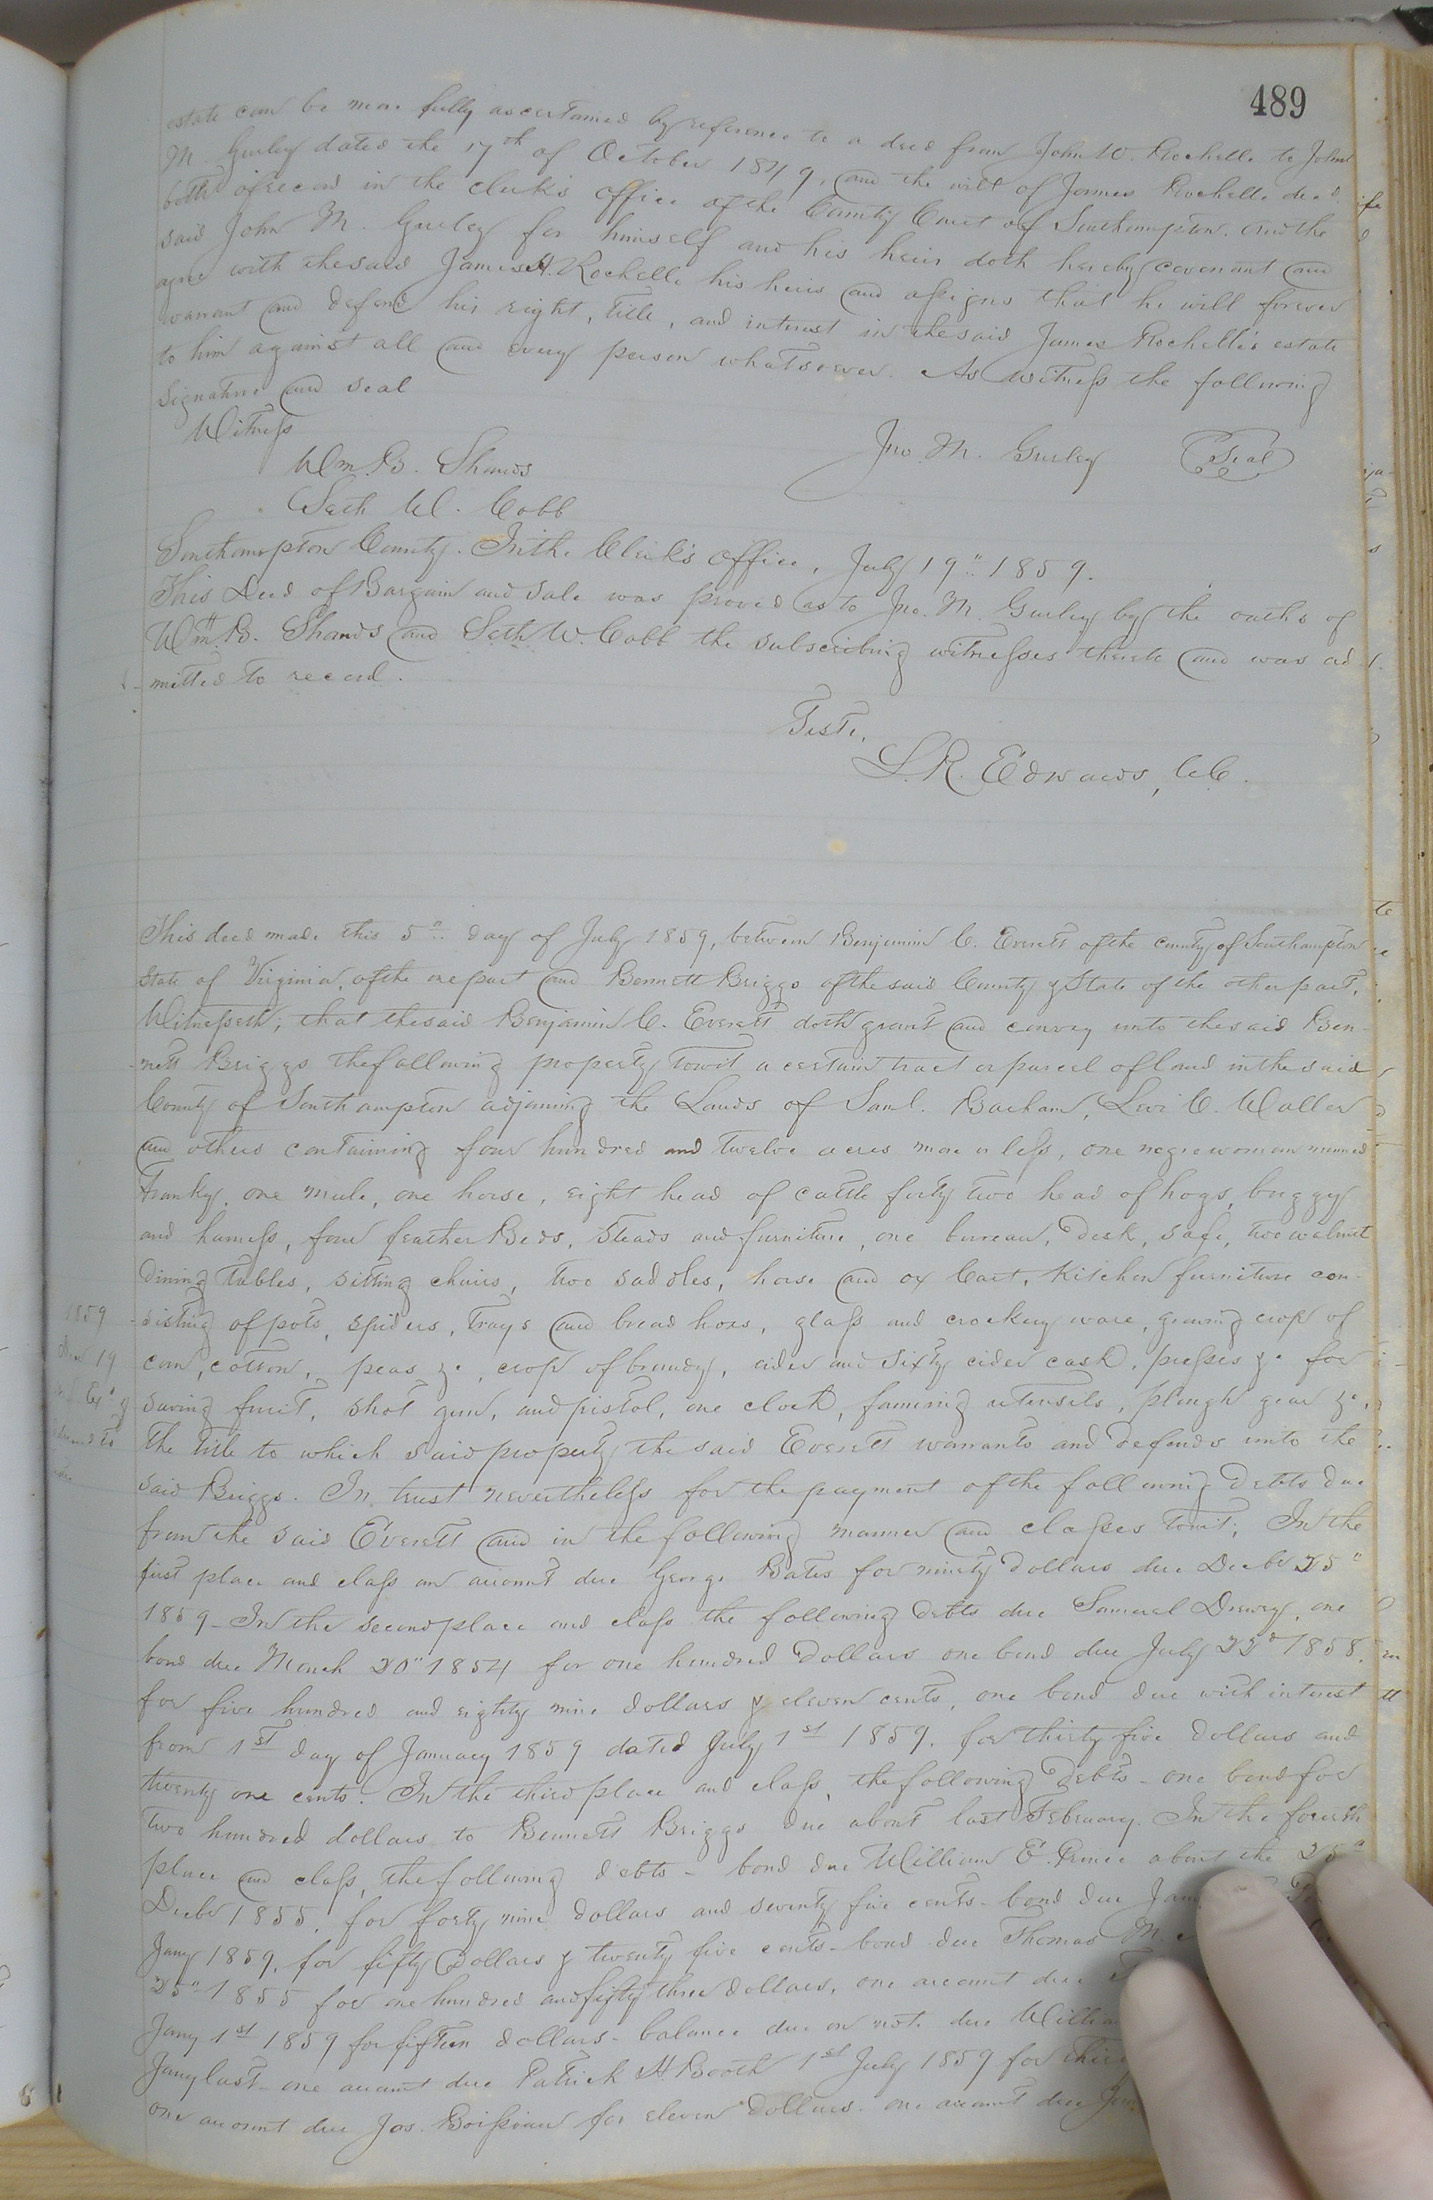 489
estate can be more fully ascertained by reference to a deed from John W. Rochelle to John
M. Gurley dated the 17th of October 1849, and the will of James Rochelle decd
both of record in the clerk's office of the County Court of Southampton. And the
said John M. Gurley for himself and his heirs doth hereby covenant and
agree with the said James H. Rochelle his heirs and assigns that he will forever
warrant and defend his right, title, and interest in the said James Rochelle's estate
to him against all and every person whatsoever. As witness the following
signature and seal
Witness
Jno. M. Gurley Seal
Wm. B. Shands
Seth W. Cobb
Southampton County. In the Clerk's office, July 19" 1859.
This Deed of Bargain and sale was proved as to Jno. M. Gurley by the oaths of
Wm. B. Shands and Seth W. Cobb the subscribing witnesses thereto and was ad
mitted to record.
Teste,
L. R. Edwards, CC.
This deed made this 5" day of July 1859, between Benjamin C. Everett of the county of Southampton
State of Virginia, of the one part and Bennett Briggs of the said County & State of the other part,
Witnesseth; that the said Benjamin C. Everett doth grant and convey unto the said Ben-
-nett Briggs the following property towit a certain tract or parcel of land in the said
County of Southampton adjoining the Lands of Saml. Barham, Levi C. Waller
and others containing four hundred and twelve acres more or less, one negro woman named
Franky, one mule, one horse, eight head of cattle forty two head of hogs, buggy
and harness, four feather Beds, Steads and furniture, one bureau, Desk, safe, two walnut
Dining tables, sitting chairs, two saddles, horse and ox Cart, Kitchen furniture con-
-sisting of pots, spiders, trays and bread hoes, glass and crockery ware, growing crop of
corn, cotton, peas &c, crop of brandy, cider and sixty cider cask, presses &c for
saving fruit, shot gun, and pistol, one clock, farming utensils, plough gear &c,
The title to which said property the said Everett warrants and defends unto the
said Briggs. In trust nevertheless for the payment of the following Debts due
from the said Everett and in the following manner and classes towit; In the
first place and class an account due George Bates for ninety Dollars due Decbr 25"
1859 - In the second place and class the following debts due Samuel Drewry, one
bond due March 20" 1854 for one hundred Dollars one bond due July 22d 1858,
for five hundred and eighty nine dollars & eleven cents, one bond due with interest
from 1st day of January 1859 dated July 1st 1859, for thirty five Dollars and
twenty one cents. In the third place and class, the following Debts - one bond for
two hundred dollars to Bennett Briggs due about last February. In the fourth
place and class, the following debts - bond due William E. Prince about the 25"
Decbr 1855, for forty nine dollars and seventy five cents - bond due
Jany 1859, for fifty Dollars & twenty five cents - bond due Thomas M.
25" 1855 for one hundred and fifty three dollars, one account due
Jany 1st 1859 for fifteen dollars - balance due on note due
Jany last - one account due Patrick H. Booth 1st July 1859 for
one account due Jos. Boisseau for eleven Dollars - one account due
1859